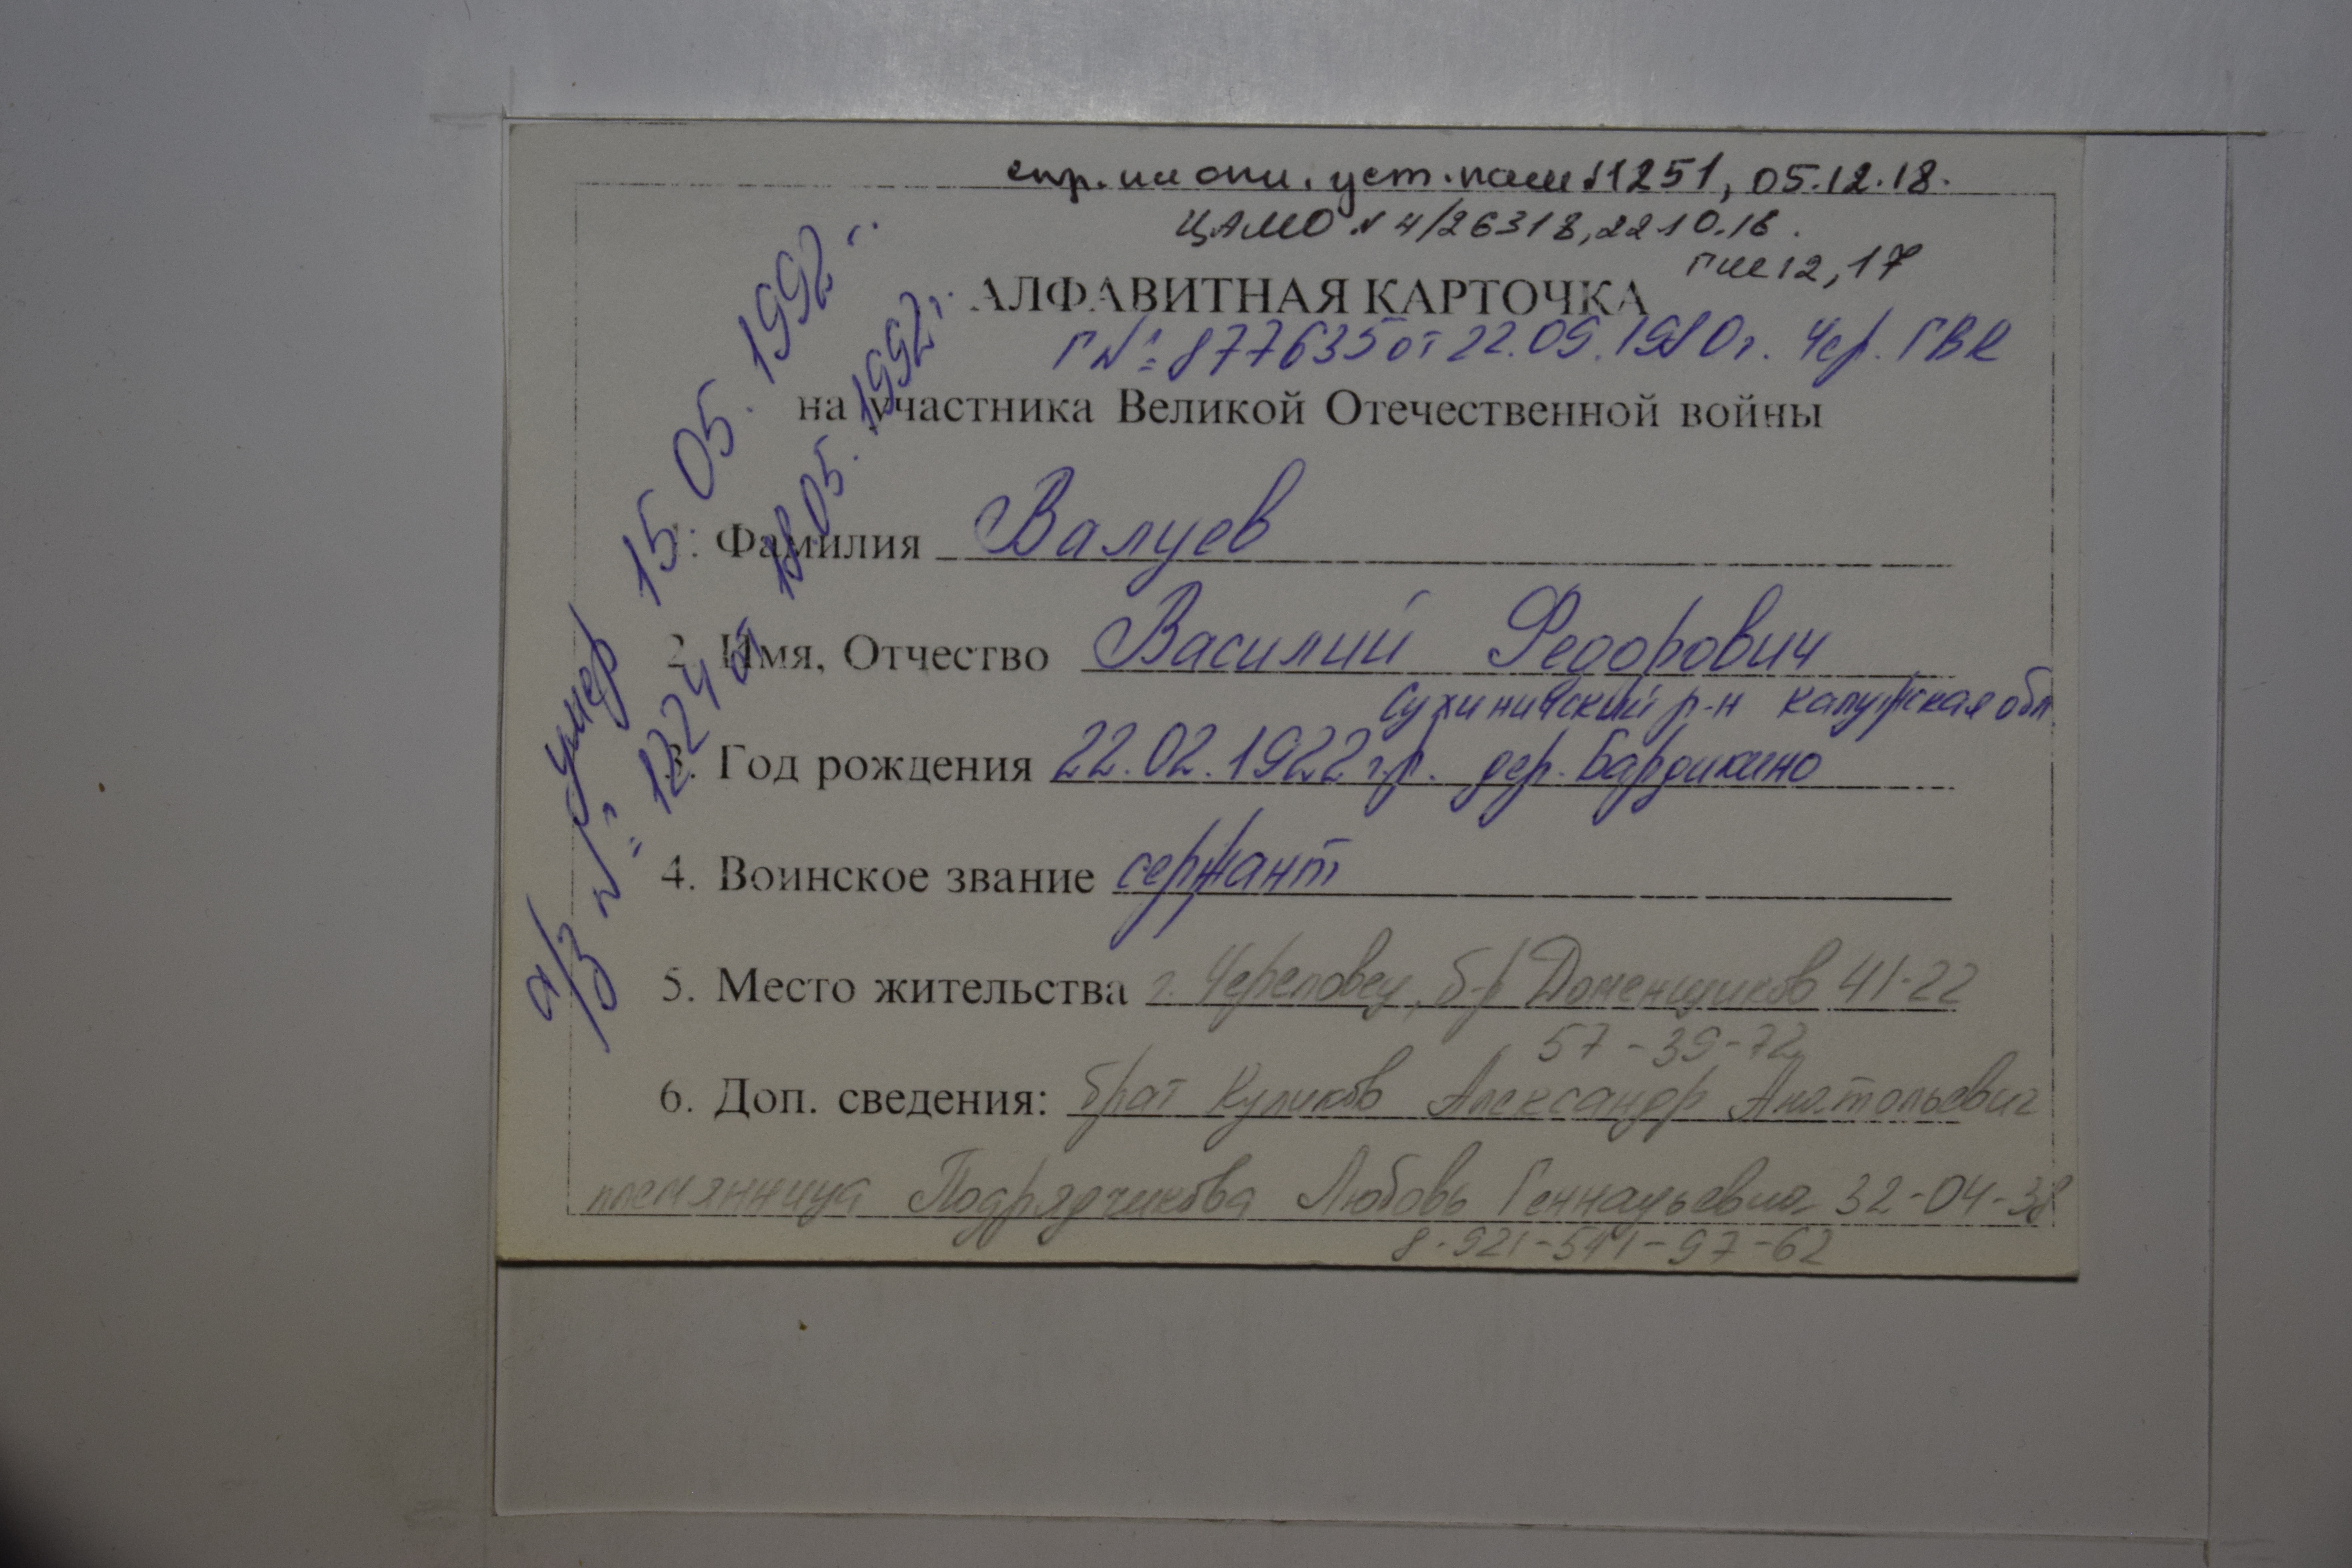 уст. пам 1251, 05.12.18.
ЦАМО № 4/26318, 22.10.18.
12, 17
АЛФАВИТНАЯ КАРТОЧКА
Г № 877635 от 22.09.1980г. Чер. ГВК
на участника Великой Отечественной войны
1. Фамилия Валуев
2. Имя, Отчество Василий Федорович
Сухиничский р-н Калужская обл
3. Год рождения 22.02.1922 г.р. дер. Бардикино
4. Воинское звание сержант
5. Место жительства г. Череповец, б-р Доменщиков 41-22
57-39-72
6. Доп. сведения: брат Куликов Александр Анатольевич
племянница Подрядчикова Любовь Геннадьевна 32-04-38
8-921-541-97-62
умер 15.05.1992г.
а/з № 1224 от 18.05.1992г.